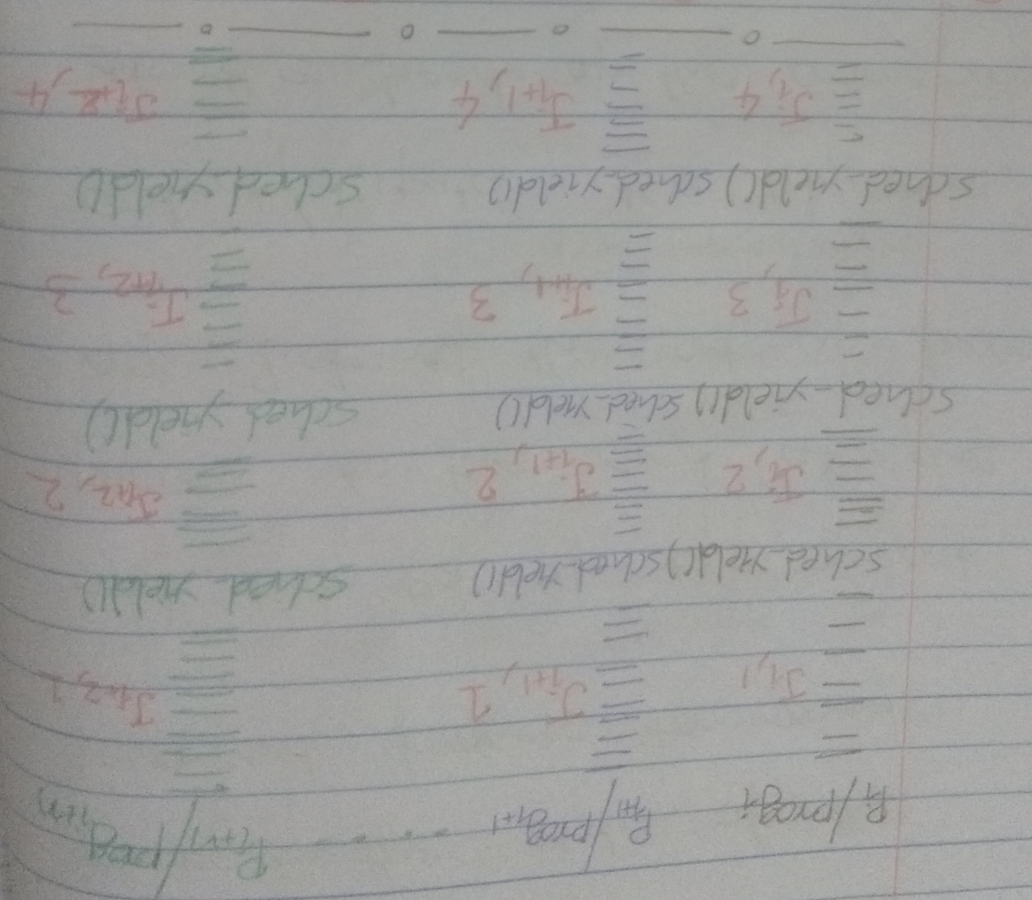 Pi/progi Pi+1/progi+1 - - - - Pi+n/progi+n
Ji,1 Ji+1, 1 Ji+2,1
sched-yield() sched-yield() sched-yield()
Ji,2 Ji+1, 2 Ji+2, 2
sched-yield() sched-yield() sched-yield()
Ji,3 Ji+1, 3 Ji+2, 3
sched-yield() sched-yield() sched-yield()
Ji,4 Ji+1, 4 Ji+2, 4